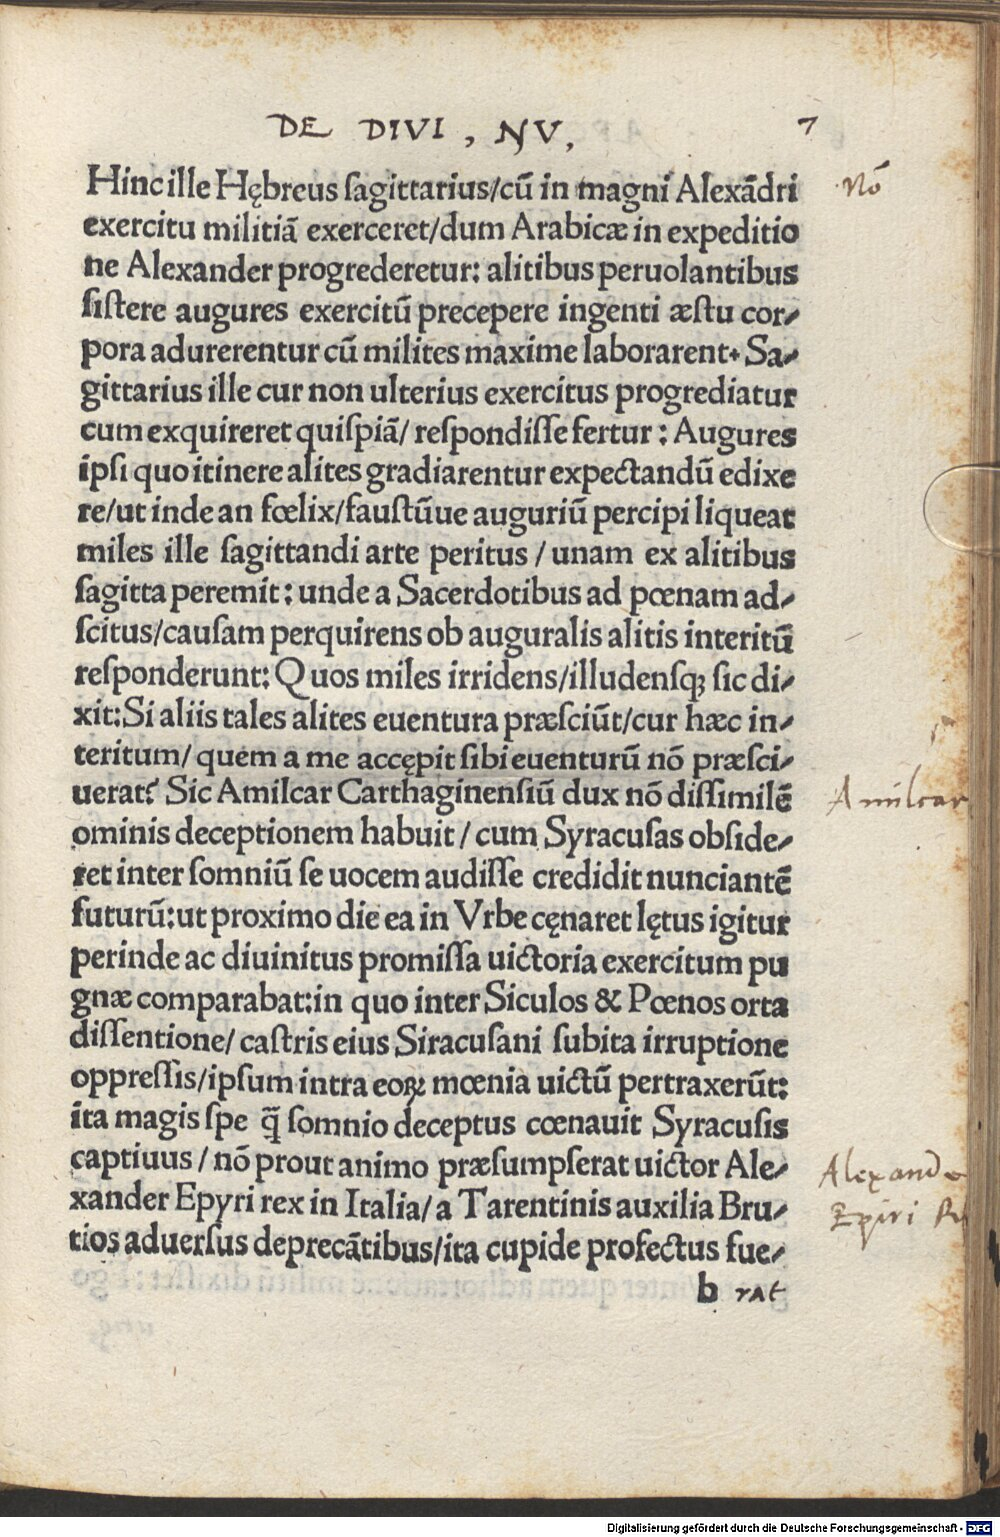 DE DIVI, NV, 7
Hinc ille Hębreus ſagittarius/cū in magni Alexādri
Nō
exercitu militiā exerceret/dum Arabicæ in expeditio
ne Alexander progrederetur: alitibus peruolantibus
ſiſtere augures exercitū precepere ingenti æſtu cor⸗
pora adurerentur cū milites maxime laborarent. Sa⸗
gittarius ille cur non ulterius exercitus progrediatur
cum exquireret quiſpiā/ reſpondiſſe fertur: Augures
ipſi quo itinere alites gradiarentur expectandū edixe
re/ut inde an fœlix/fauſtūue auguriū percipi liqueat
miles ille ſagittandi arte peritus / unam ex alitibus
ſagitta peremit: unde a Sacerdotibus ad pœnam ad⸗
ſcitus/cauſam perquirens ob auguralis alitis interitū
reſponderunt: Quos miles irridens/illudenſq; ſic di⸗
xit: Si aliis tales alites euentura præſciūt/cur hæc in⸗
teritum/ quem a me accępit ſibi euenturū nō præſci⸗
uerat? Sic Amilcar Carthaginenſiū dux nō diſſimilē
Amilcar
ominis deceptionem habuit / cum Syracuſas obſide⸗
ret inter ſomniū ſe uocem audiſſe credidit nunciantē
futurū: ut proximo die ea in Vrbe cęnaret lętus igitur
perinde ac diuinitus promiſſa uictoria exercitum pu
gnæ comparabat: in quo inter Siculos & Pœnos orta
diſſentione/ caſtris eius Siracuſani ſubita irruptione
oppreſſis/ipſum intra eoꝝ mœnia uictū pertraxerūt:
ita magis ſpe q̄ ſomnio deceptus cœnauit Syracuſis
captiuus / nō prout animo præſumpſerat uictor Ale⸗
Alexande
xander Epyri rex in Italia/ a Tarentinis auxilia Bru⸗
Epiri
tios aduerſus deprecātibus/ita cupide profectus fue⸗
b rat
Digitalisierung gefördert durch die Deutsche Forschungsgemeinschaft - DFG